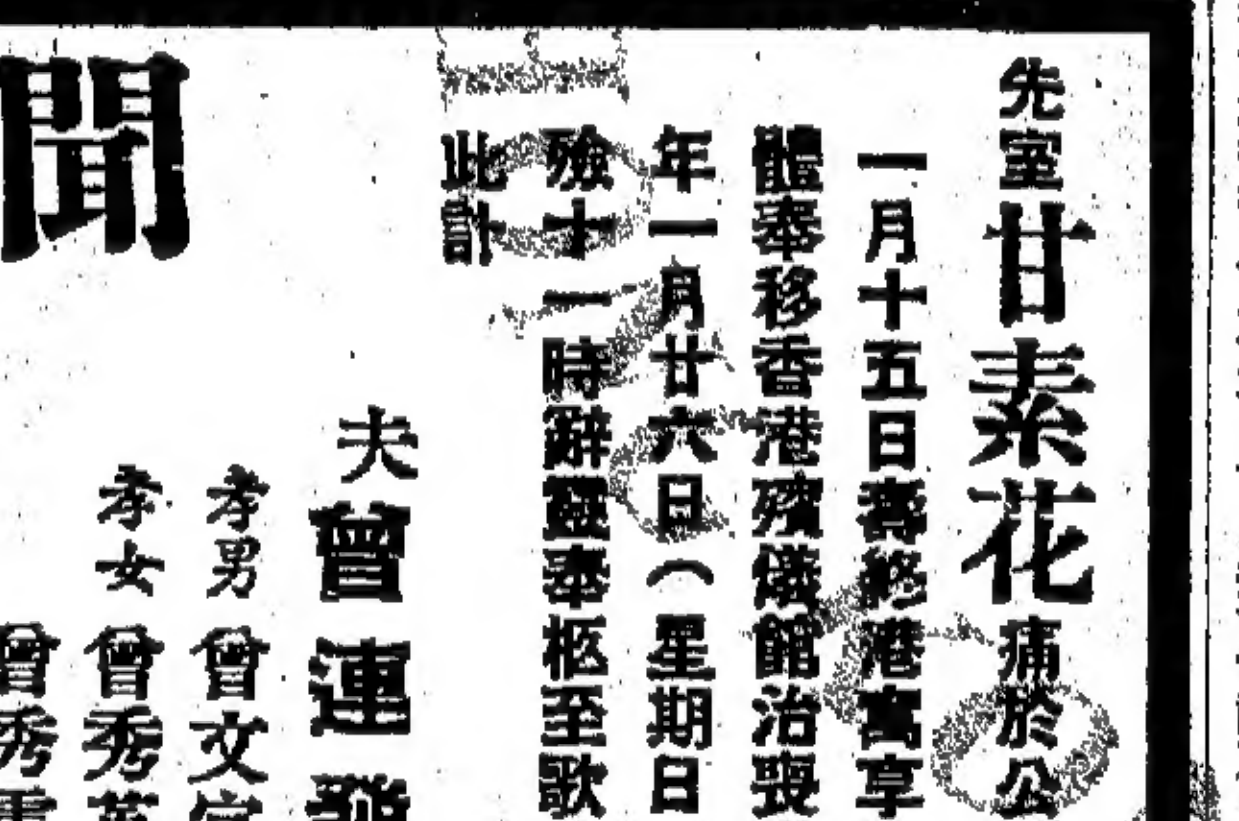 先室廿素花痛於公
一月十五日壽終港寓享
體奉移香港殯儀館治喪
年一月廿六日（星期日
殮十一時辭靈奉柩至歌
此訃
夫曾連
孝男曾文
孝女曾秀英
曾秀
聞